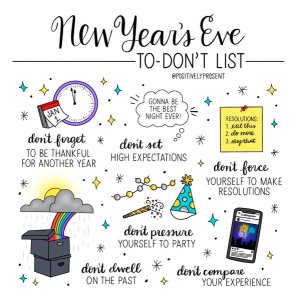 New Year's Eve
TO-DON'T LIST
@POSITIVELYPRESENT
JAN
GONNA BE
THE BEST
NIGHT EVER!
RESOLUTIONS:
1. eat this
2. do more
3. stop that
don't forget
TO BE THANKFUL
FOR ANOTHER YEAR
don't set
HIGH EXPECTATIONS
don't force
YOURSELF TO MAKE
RESOLUTIONS
don't pressure
YOURSELF TO PARTY
don't dwell
ON THE PAST
don't compare
YOUR EXPERIENCE